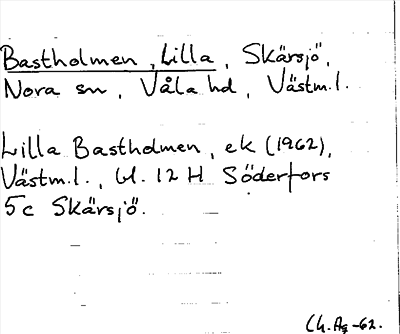 Bastholmen, Lilla, Skärsjö,
Nora sn, Våla hd, Västm.l.
Lilla Bastholmen, ek (1962),
Västm.l., bl. 12 H Söderfors
5c Skärsjö.
Ch. Ag -62.